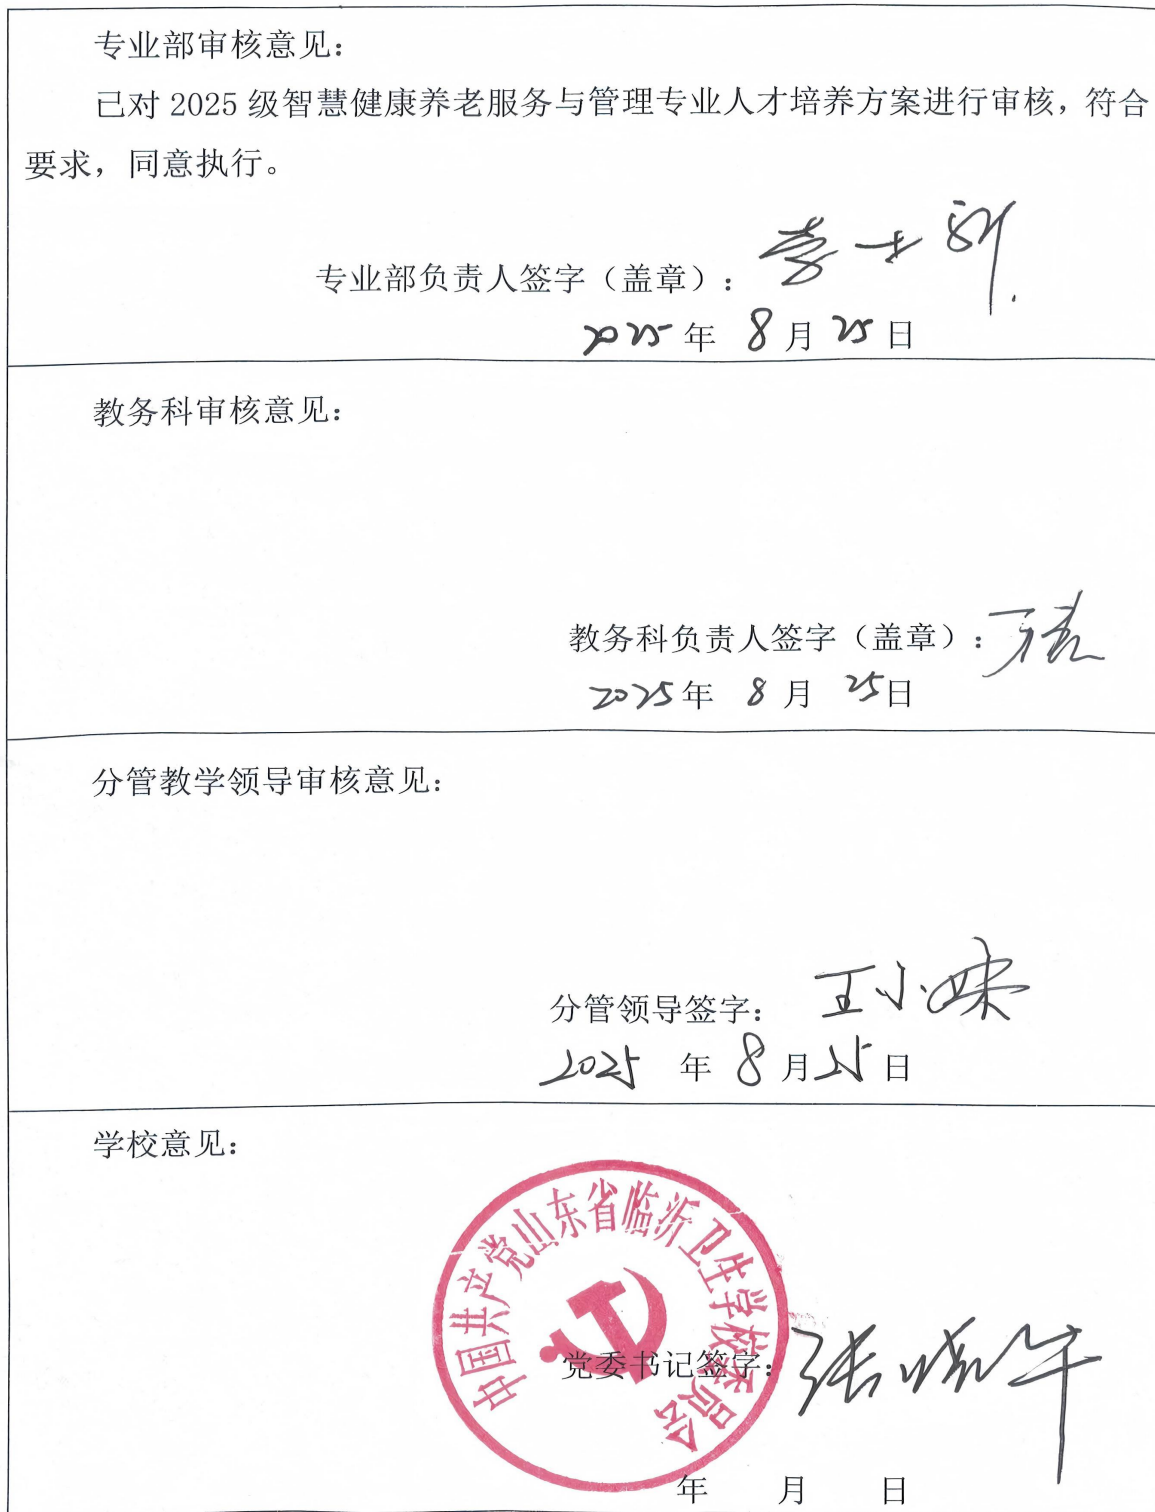 专业部审核意见：
已对 2025 级智慧健康养老服务与管理专业人才培养方案进行审核，符合
要求，同意执行。
专业部负责人签字（盖章）：
2025 年 8 月 25 日
教务科审核意见：
教务科负责人签字（盖章）：
2025 年 8 月 25 日
分管教学领导审核意见：
分管领导签字： 王小妹
2025 年 8 月 25 日
学校意见：
中国共产党山东省临沂卫生学校委员会
党委书记签字： 张晓华
年 月 日